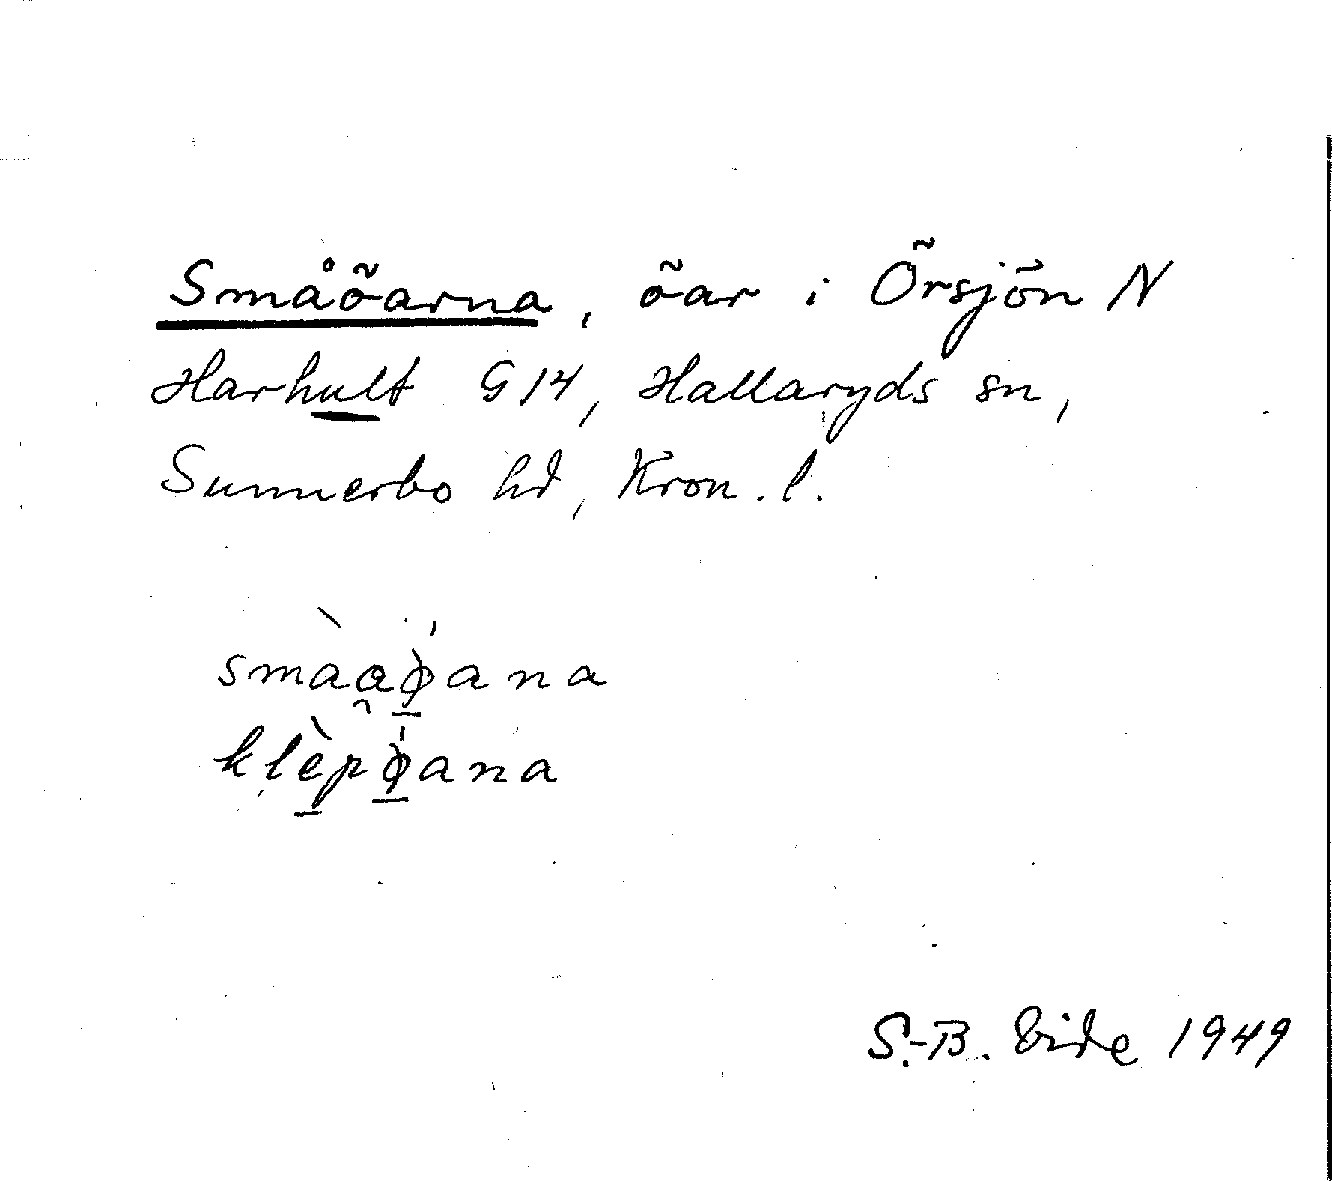 Småöarna, öar i Örsjön N
Harhult G 14, Hallaryds sn,
Sunnerbo hd, Kron. l.
smàaø̀ana
klèpø̀ana
S.-B. Vide 1949